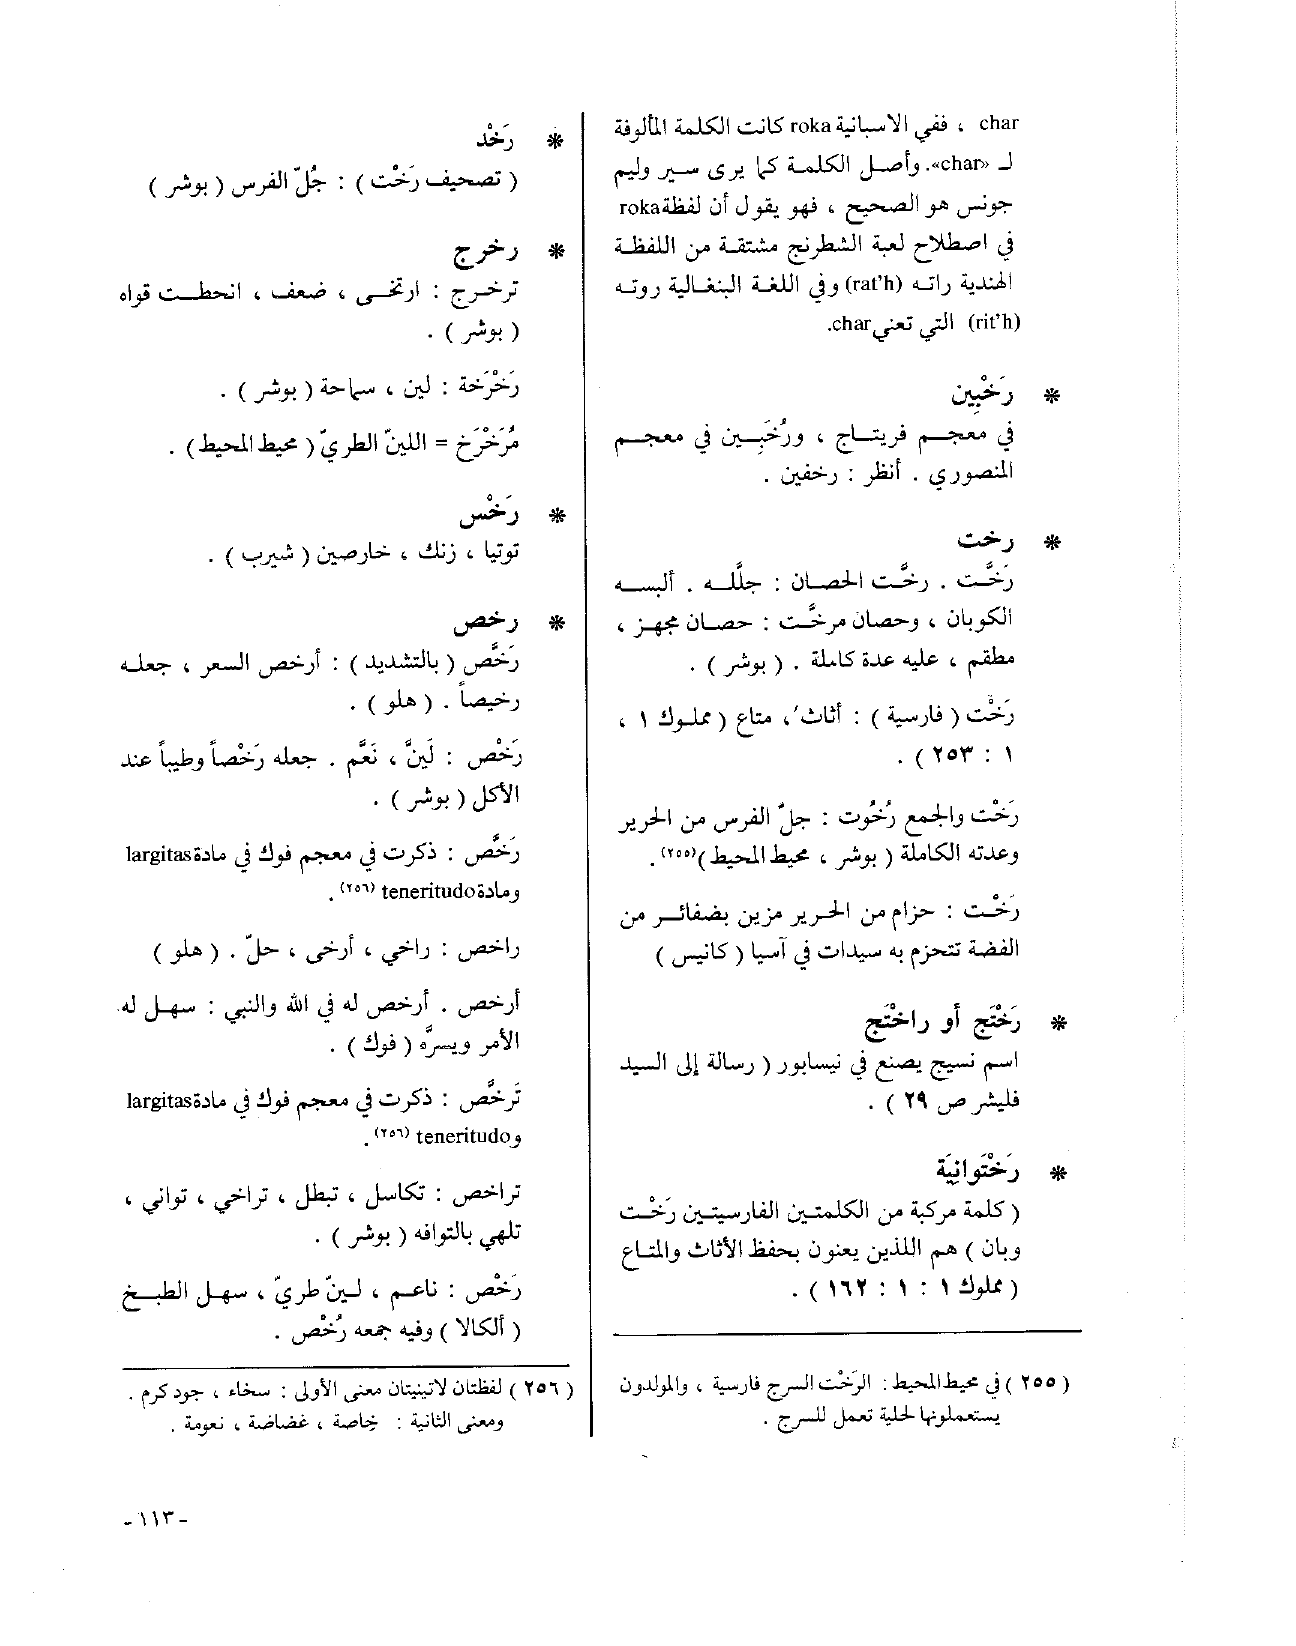 char ، ففي الاسبانية roka كانت الكلمة المألوفة
لـ «char». وأصل الكلمة كما يرى سير وليم
جونس هو الصحيح ، فهو يقول أن لفظة roka
في اصطلاح لعبة الشطرنج مشتقة من اللفظة
الهندية راته (rat'h) وفي اللغة البنغالية روته
(rit'h) التي تعني char.
* رَخْبِين
في معجم فريتاج ، ورُخَبِين في معجم
المنصوري . أنظر : رخفين .
* رخت
رَخَّت . رخَّت الحصان : جلَّله . ألبسه
الكوبان ، وحصان مرخَّت : حصان مجهز ،
مطقم ، عليه عدة كاملة . ( بوشر ) .
رَخْت ( فارسية ) : أثاث ، متاع ( مملوك ١ ،
١ : ٢٥٣ ) .
رَخْت والجمع رُخُوت : جلّ الفرس من الحرير
وعدته الكاملة ( بوشر ، محيط المحيط )(٢٥٥).
رَخْت : حزام من الحرير مزين بضفائر من
الفضة تتحزم به سيدات في آسيا ( كانيس )
* رَخْتَج أو راخْتَج
اسم نسيج يصنع في نيسابور ( رسالة إلى السيد
فليشر ص ٢٩ ) .
* رَخْتَوانِيَة
( كلمة مركبة من الكلمتين الفارسيتين رَخْت
وبان ) هم اللذين يعنون بحفظ الأثاث والمتاع
( مملوك ١ : ١ : ١٦٢ ) .
( ٢٥٥ ) في محيط المحيط : الرَخْت السرج فارسية ، والمولدون
يستعملونها لحلية تعمل للسرج .
* رَخْد
( تصحيف رَخْت ) : جُلّ الفرس ( بوشر )
* رخرج
ترخرج : ارتخى ، ضعف ، انحطت قواه
( بوشر ) .
رَخْرَخة : لين ، سماحة ( بوشر ) .
مُرَخْرَخ = اللينّ الطريّ ( محيط المحيط ) .
* رَخْس
توتيا ، زنك ، خارصين ( شيرب ) .
* رخص
رَخَّص ( بالتشديد ) : أرخص السعر ، جعله
رخيصاً . ( هلو ) .
رَخْص : لَينَّ ، نَعَّم . جعله رَخْصاً وطيباً عند
الأكل ( بوشر ) .
رَخَّص : ذكرت في معجم فوك في مادة largitas
ومادة teneritudo (٢٥٦).
راخص : راخي ، أرخى ، حلّ . ( هلو )
أرخص . أرخص له في الله والنبي : سهل له
الأمر ويسرَّه ( فوك ) .
تَرخَّص : ذكرت في معجم فوك في مادة largitas
و teneritudo (٢٥٦).
تراخص : تكاسل ، تبطل ، تراخي ، تواني ،
تلهي بالتوافه ( بوشر ) .
رَخْص : ناعم ، لينّ طريّ ، سهل الطبخ
( ألكالا ) وفيه جمعه رُخْص .
( ٢٥٦ ) لفظتان لاتينيتان معنى الأولى : سخاء ، جود كرم .
ومعنى الثانية : خاصة ، غضاضة ، نعومة .
- ١١٣ -